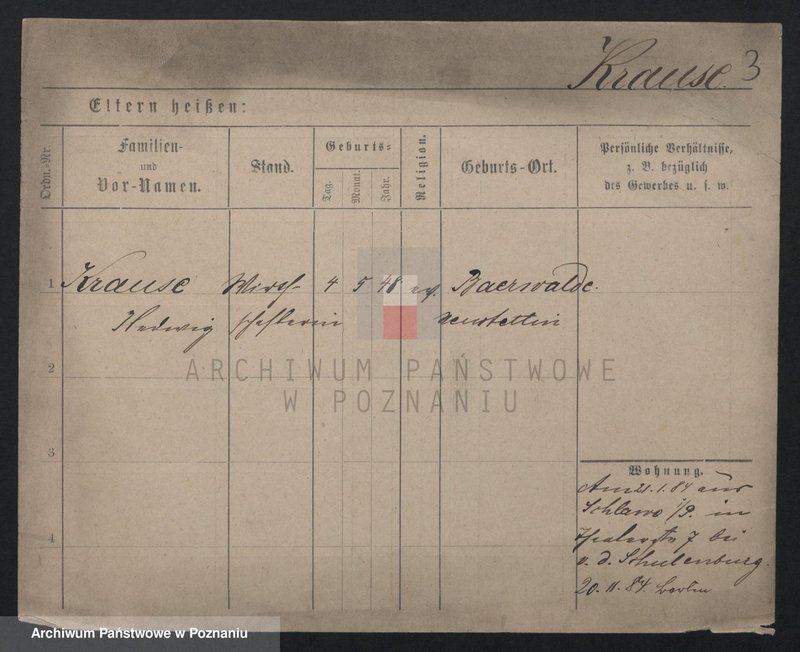 Krause. 3
Eltern heißen:
Ordn.-Nr
Familien-
und
Vor-Namen.
Stand.
Geburts-
Tag.
Monat.
Jahr.
Religion.
Geburts-Ort.
Persönliche Verhältnisse,
z. B. bezüglich
des Gewerbes u. s. w.
1 Krause Wirth- 4 5 48 ev. Baerwalde.
Hedwig schafterin Neustettin
ARCHIWUM PAŃSTWOWE
W POZNANIU
2
3
4
Wohnung.
Am 21.1.84 aus
Schlawe i/P. in
7 bei
v. d. Schulenburg.
20.11.84. Berlin
Archiwum Państwowe w Poznaniu